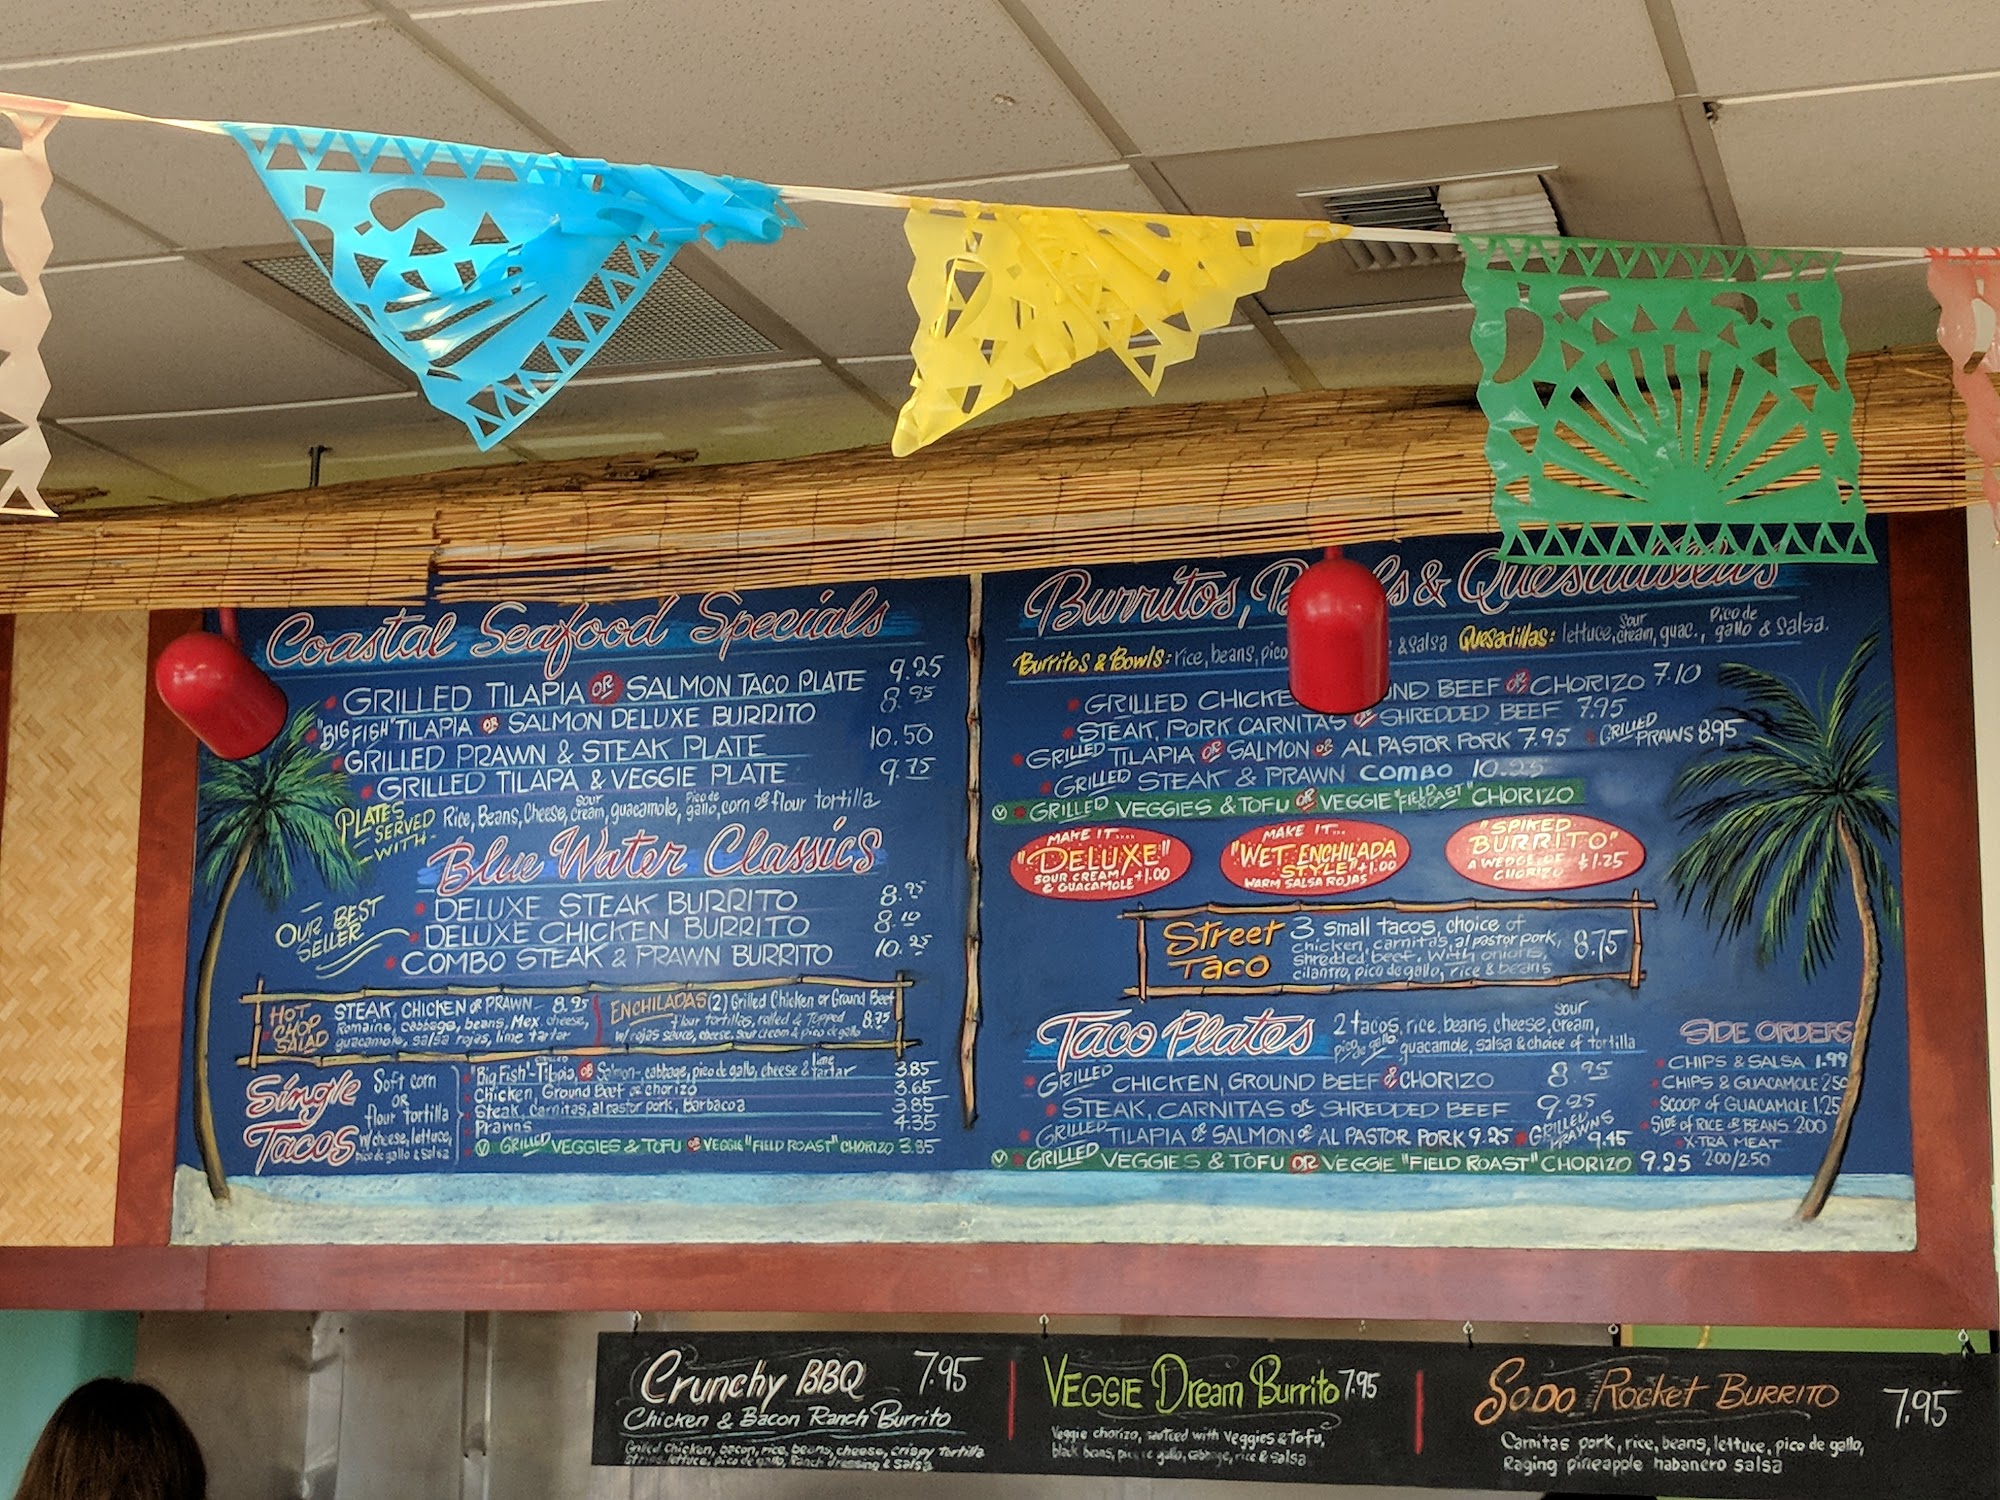 Coastal Seafood Specials
GRILLED TILAPIA OR SALMON TACO PLATE 9.25
"BIG FISH" TILAPIA OR SALMON DELUXE BURRITO 8.95
GRILLED PRAWN & STEAK PLATE 10.50
GRILLED TILAPA & VEGGIE PLATE 9.75
PLATES SERVED WITH- Rice, Beans, Cheese, sour cream, guacamole, Pico de gallo, corn or flour tortilla
Blue Water Classics
OUR BEST SELLER
DELUXE STEAK BURRITO 8.95
DELUXE CHICKEN BURRITO 8.10
COMBO STEAK & PRAWN BURRITO 10.25
HOT CHOP SALAD
STEAK, CHICKEN OR PRAWN- 8.95
Romaine, cabbage, beans, Mex. cheese,
guacamole, salsa rojas, lime tarter
ENCHILADAS (2) Grilled Chicken or Ground Beef
flour tortillas, rolled & Topped 8.75
w/ rojas sauce, cheese, sour cream & pico de gallo
Single Tacos
Soft corn
OR
flour tortilla
w/ cheese, lettuce,
pico de gallo & salsa
"Big Fish"- Tilapia, OR Salmon- cabbage, pico de gallo, cheese & lime tartar 3.85
Chicken, Ground Beef or chorizo 3.65
Steak, Carnitas, al pastor pork, Barbacoa 3.85
Prawns 4.35
V GRILLED VEGGIES & TOFU OR VEGGIE "FIELD ROAST" CHORIZO 3.85
Burritos, & Quesadillas
Burritos & Bowls: rice, beans, pico & salsa Quesadillas: lettuce, sour cream, guac., Pico de gallo & salsa.
GRILLED CHICKE ND BEEF OR CHORIZO 7.10
STEAK, PORK CARNITAS OR SHREDDED BEEF 7.95
GRILLED TILAPIA OR SALMON OR AL PASTOR PORK 7.95 GRILLED PRAWNS 8.95
GRILLED STEAK & PRAWN COMBO 10.25
V GRILLED VEGGIES & TOFU OR VEGGIE "FIELD ROAST" CHORIZO
MAKE IT....
"DELUXE"
SOUR CREAM & GUACAMOLE +1.00
MAKE IT...
"WET ENCHILADA STYLE" +1.00
WARM SALSA ROJAS
"SPIKED BURRITO"
A WEDGE OF CHORIZO $1.25
Street Taco
3 small tacos, choice of
chicken, carnitas, al pastor pork,
shredded beef. With onions,
cilantro, pico de gallo, rice & beans
8.75
Taco Plates
2 tacos, rice, beans, cheese, sour cream,
pico de gallo, guacamole, salsa & choice of tortilla
GRILLED CHICKEN, GROUND BEEF & CHORIZO 8.95
STEAK, CARNITAS OR SHREDDED BEEF 9.25
GRILLED TILAPIA OR SALMON OR AL PASTOR PORK 9.25 GRILLED PRAWNS 9.45
V GRILLED VEGGIES & TOFU OR VEGGIE "FIELD ROAST" CHORIZO 9.25
SIDE ORDERS
CHIPS & SALSA 1.99
CHIPS & GUACAMOLE 2.50
SCOOP of GUACAMOLE 1.25
SIDE of RICE or BEANS 2.00
X-TRA MEAT
2.00/2.50
Crunchy BBQ 7.95
Chicken & Bacon Ranch Burrito
Grilled Chicken, bacon, rice, beans, cheese, crispy tortilla
strips, lettuce, pico de gallo, Ranch dressing & salsa
VEGGIE Dream Burrito 7.95
Veggie chorizo, sauteed with veggies & tofu,
black beans, pico de gallo, cabbage, rice & salsa
SODO ROCKET BURRITO 7.95
Carnitas pork, rice, beans, lettuce, pico de gallo,
Raging pineapple habanero salsa